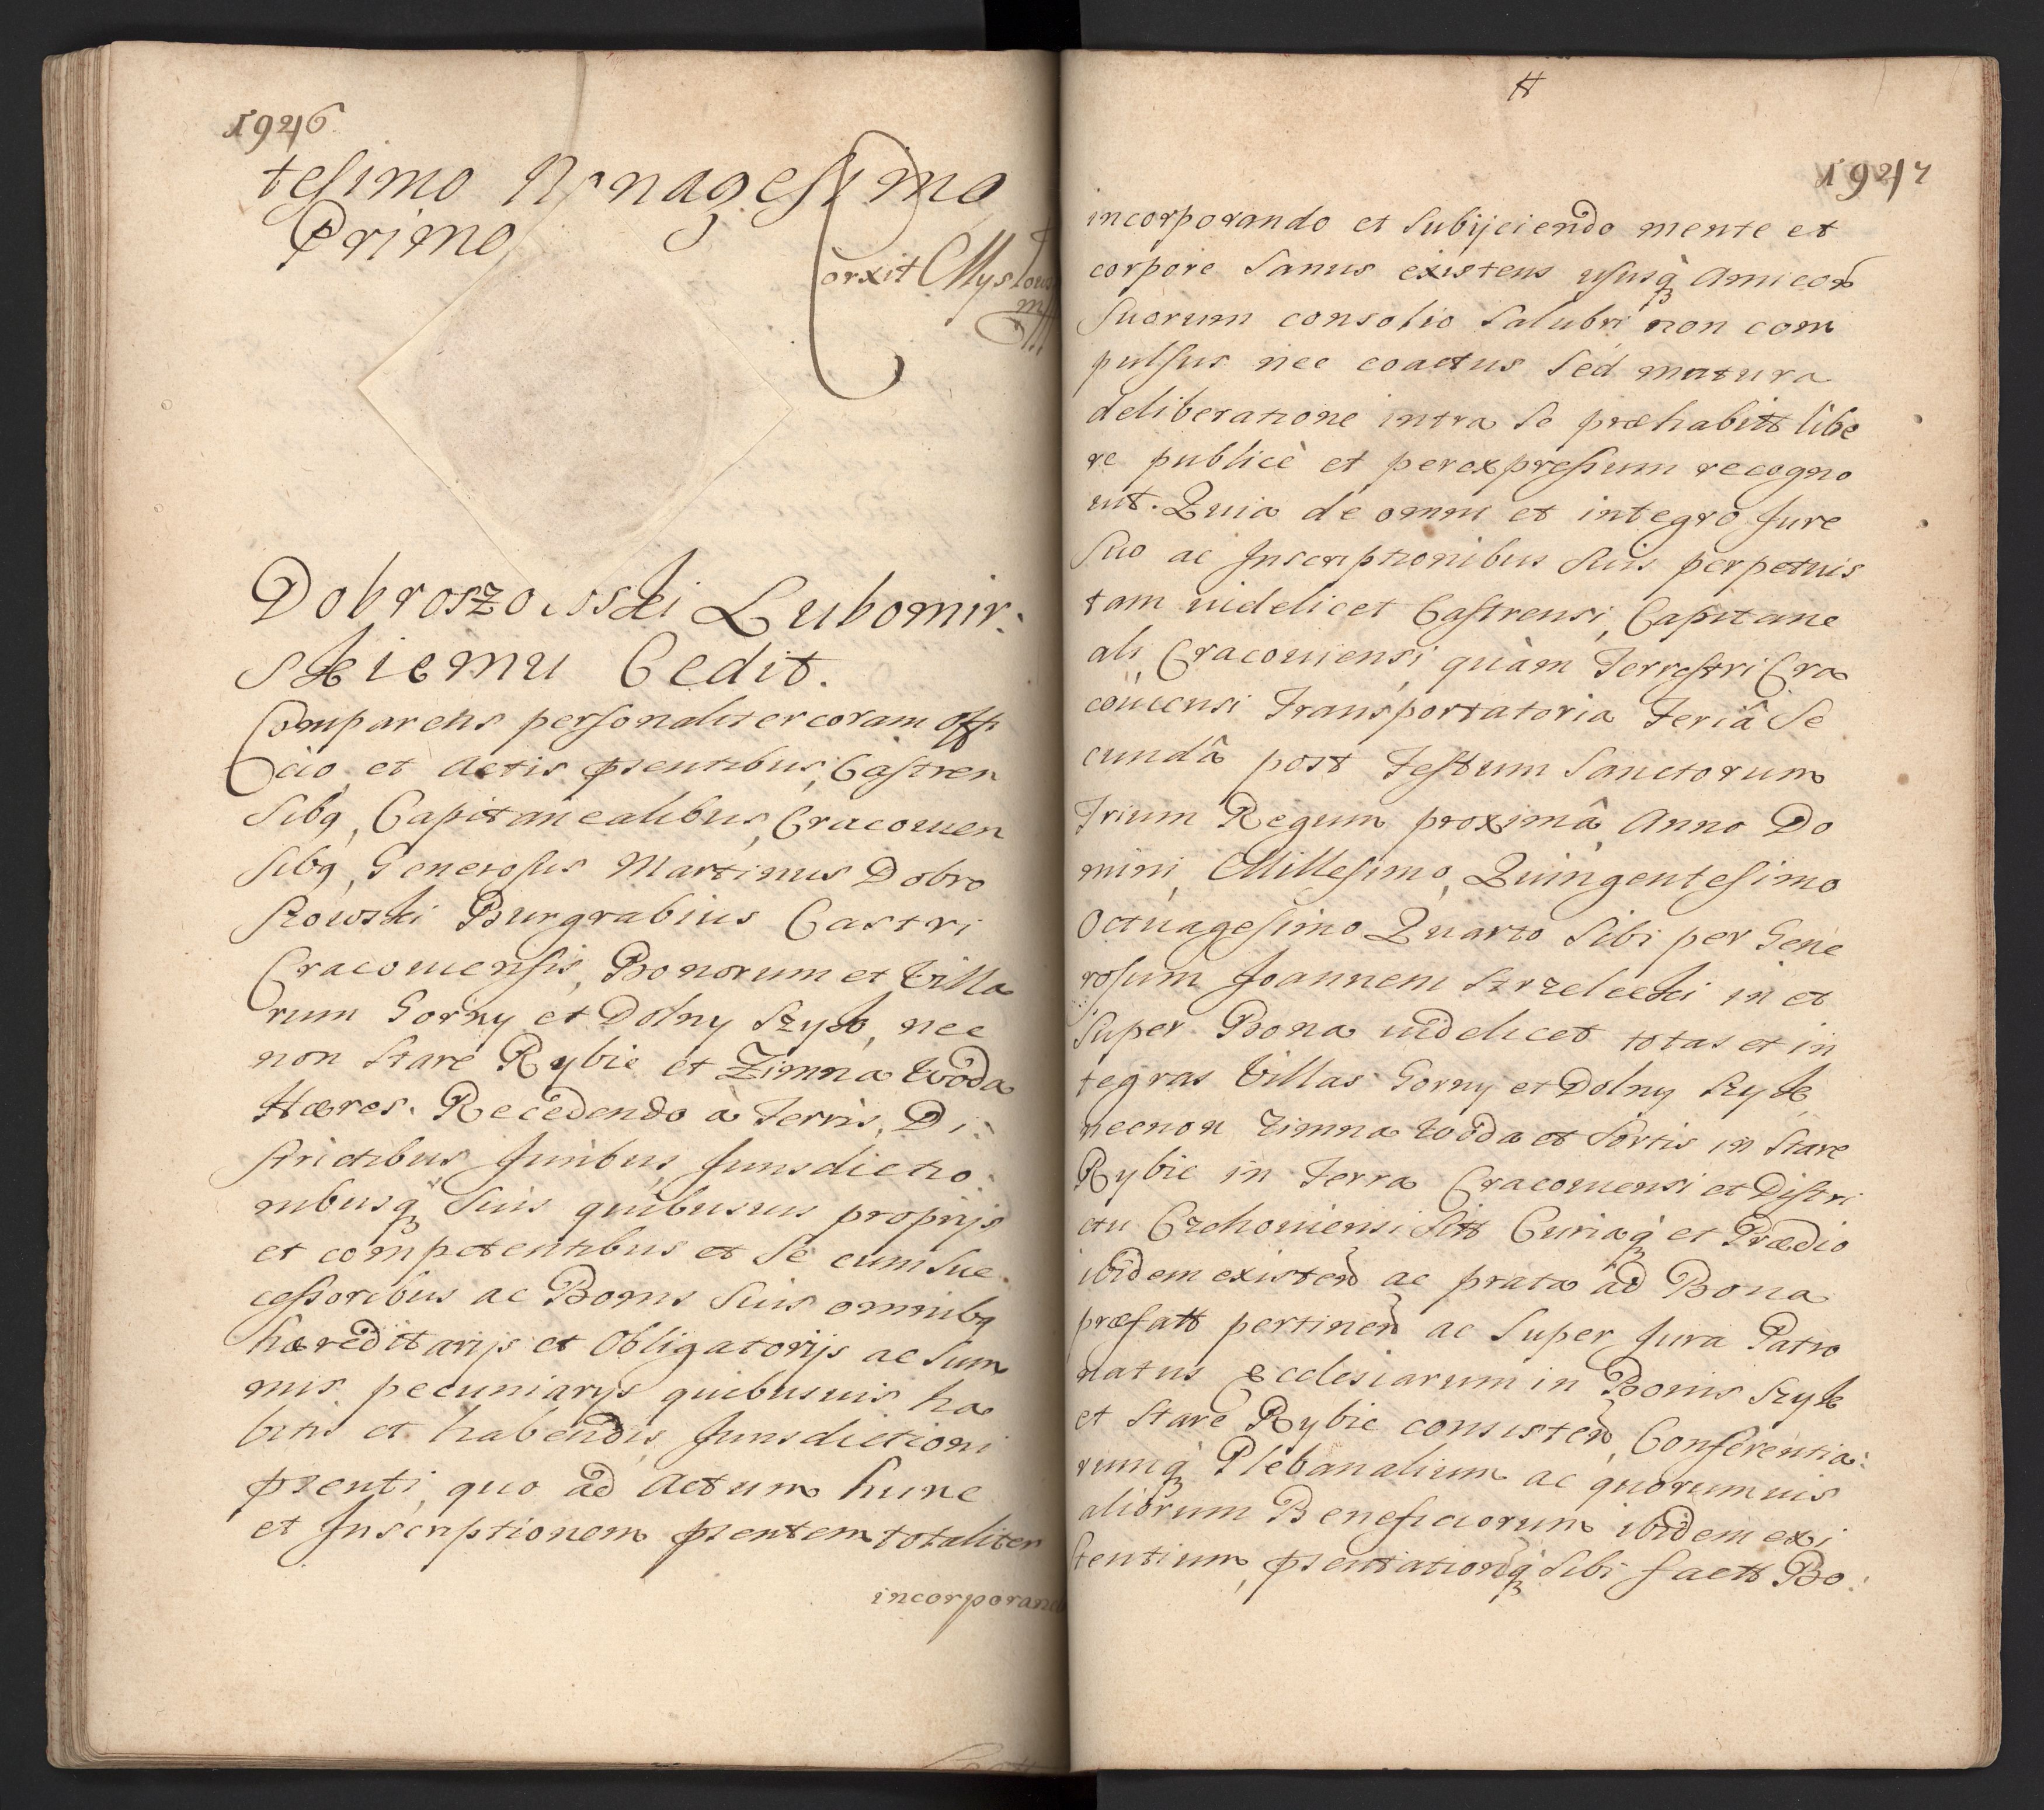 1946
tesimo Nonagesimo
Primo
Corxit Myslow
mp
Dobroszowski Lubomir:
skiemu Cedit.
Comparens personaliter coram offi
cio et Actis pñentibus, Castren
sibq, Capitanealibus, Cracovien
sibq, Generosus Martinus Dobro
szowski Burgrabius Castri
Cracoviensis, Bonorum et Villa
rum Gorny et Dolny Szyk, nec
non Stare Rybie et Zimna Woda
Hæres. Recedendo à Terris, Di:
strictibus Iuribus Iurisdictio:
nibusq suis quibusuis proprijs
et competentibus et Se cum Suc:
cessoribus ac Bonis Suis omnibq
hæreditarijs et Obligatorijs ac Sum
mis pecuniarijs quibusuis ha
bitis et habendis, Jurisdictioni
pñenti, quo ad Actum hunc
et Inscriptionem pñentem totaliter
incorporand
H
1947
incorporando et Subijciendo mente et
corpore Sanus existens ususq Amicor
Suorum consolio Salubri non com
pulsus nec coactus Sed matura
deliberatione intra Se præhabitt libe
re publicè et perexpressum recogno
uit. Quia de omni et integro Jure
Suo ac Inscriptionibus Suis perpetuis
tam videlicet Castrensi, Capitane
ali, Cracouiensi, quàm Terrestri Cra
couiensi Transportatoria Feriâ Se
cundâ post Festum Sanctorum
Trium Regum proximâ, Anno Do
mini, Millesimo, Quingentesimo
Octuagesimo Quarto Sibi per Gene
rosum Joannem Strzelecki in et
Super Bona videlicet totas et in
tegras Villas Gorny et Dolny Szyk
necnon Zimna Woda et Sortis in Stare
Rybie in Terra Cracouiensi et Distri
ctu Czchouiensi Sitt Curiaq et Prædio
ibidem existen ac prata ad Bona
præfatt pertinen ac Super Jura Patro
natus Ecclesiarum in Bonis Szyk
et Stare Rybie consisten, Conferentia:
rumq Plebanalium ac quorumuis
aliorum Beneficiorum ibidem exi
stentium, pñentationq Sibi factt Bo: